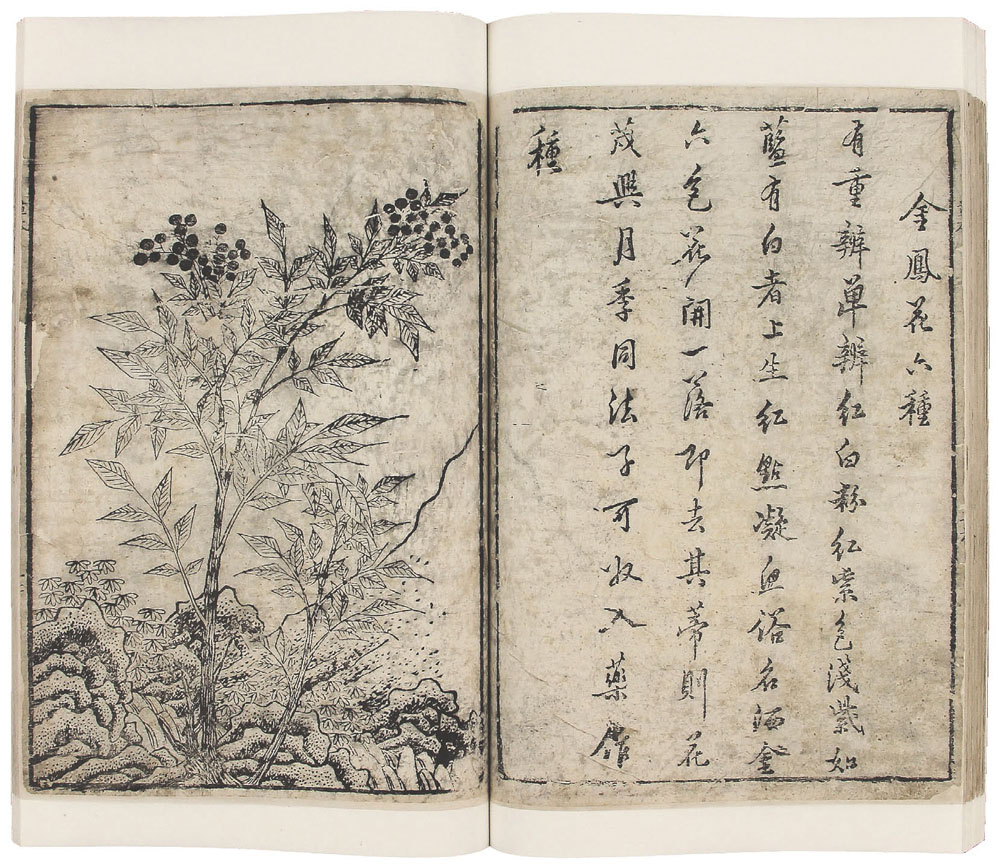 金鳳花六種
有重辦單辦紅白粉紅紫色淺紫如
藍有白者上生紅點凝血俗名洒金
六色花開一落即去其蒂則花
茂與月季同法子可收入藥作
種